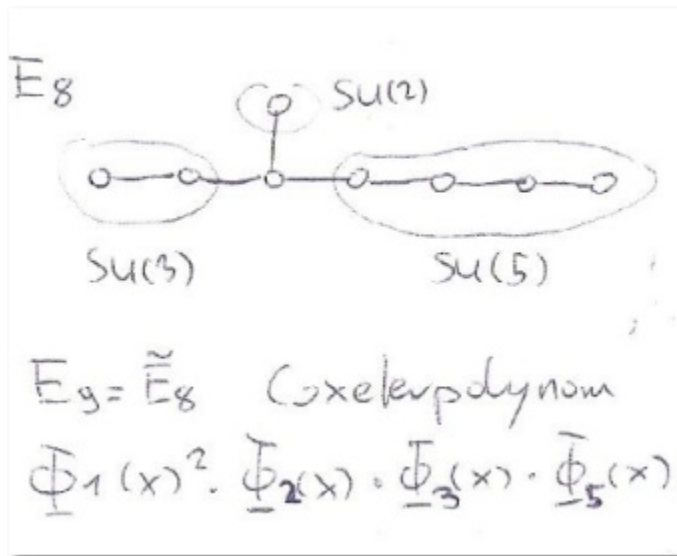 E8
SU(2)
SU(3) SU(5)
E9 = Ẽ8 Coxeterpolynom
Φ1(x)². Φ2(x) · Φ3(x) · Φ5(x)